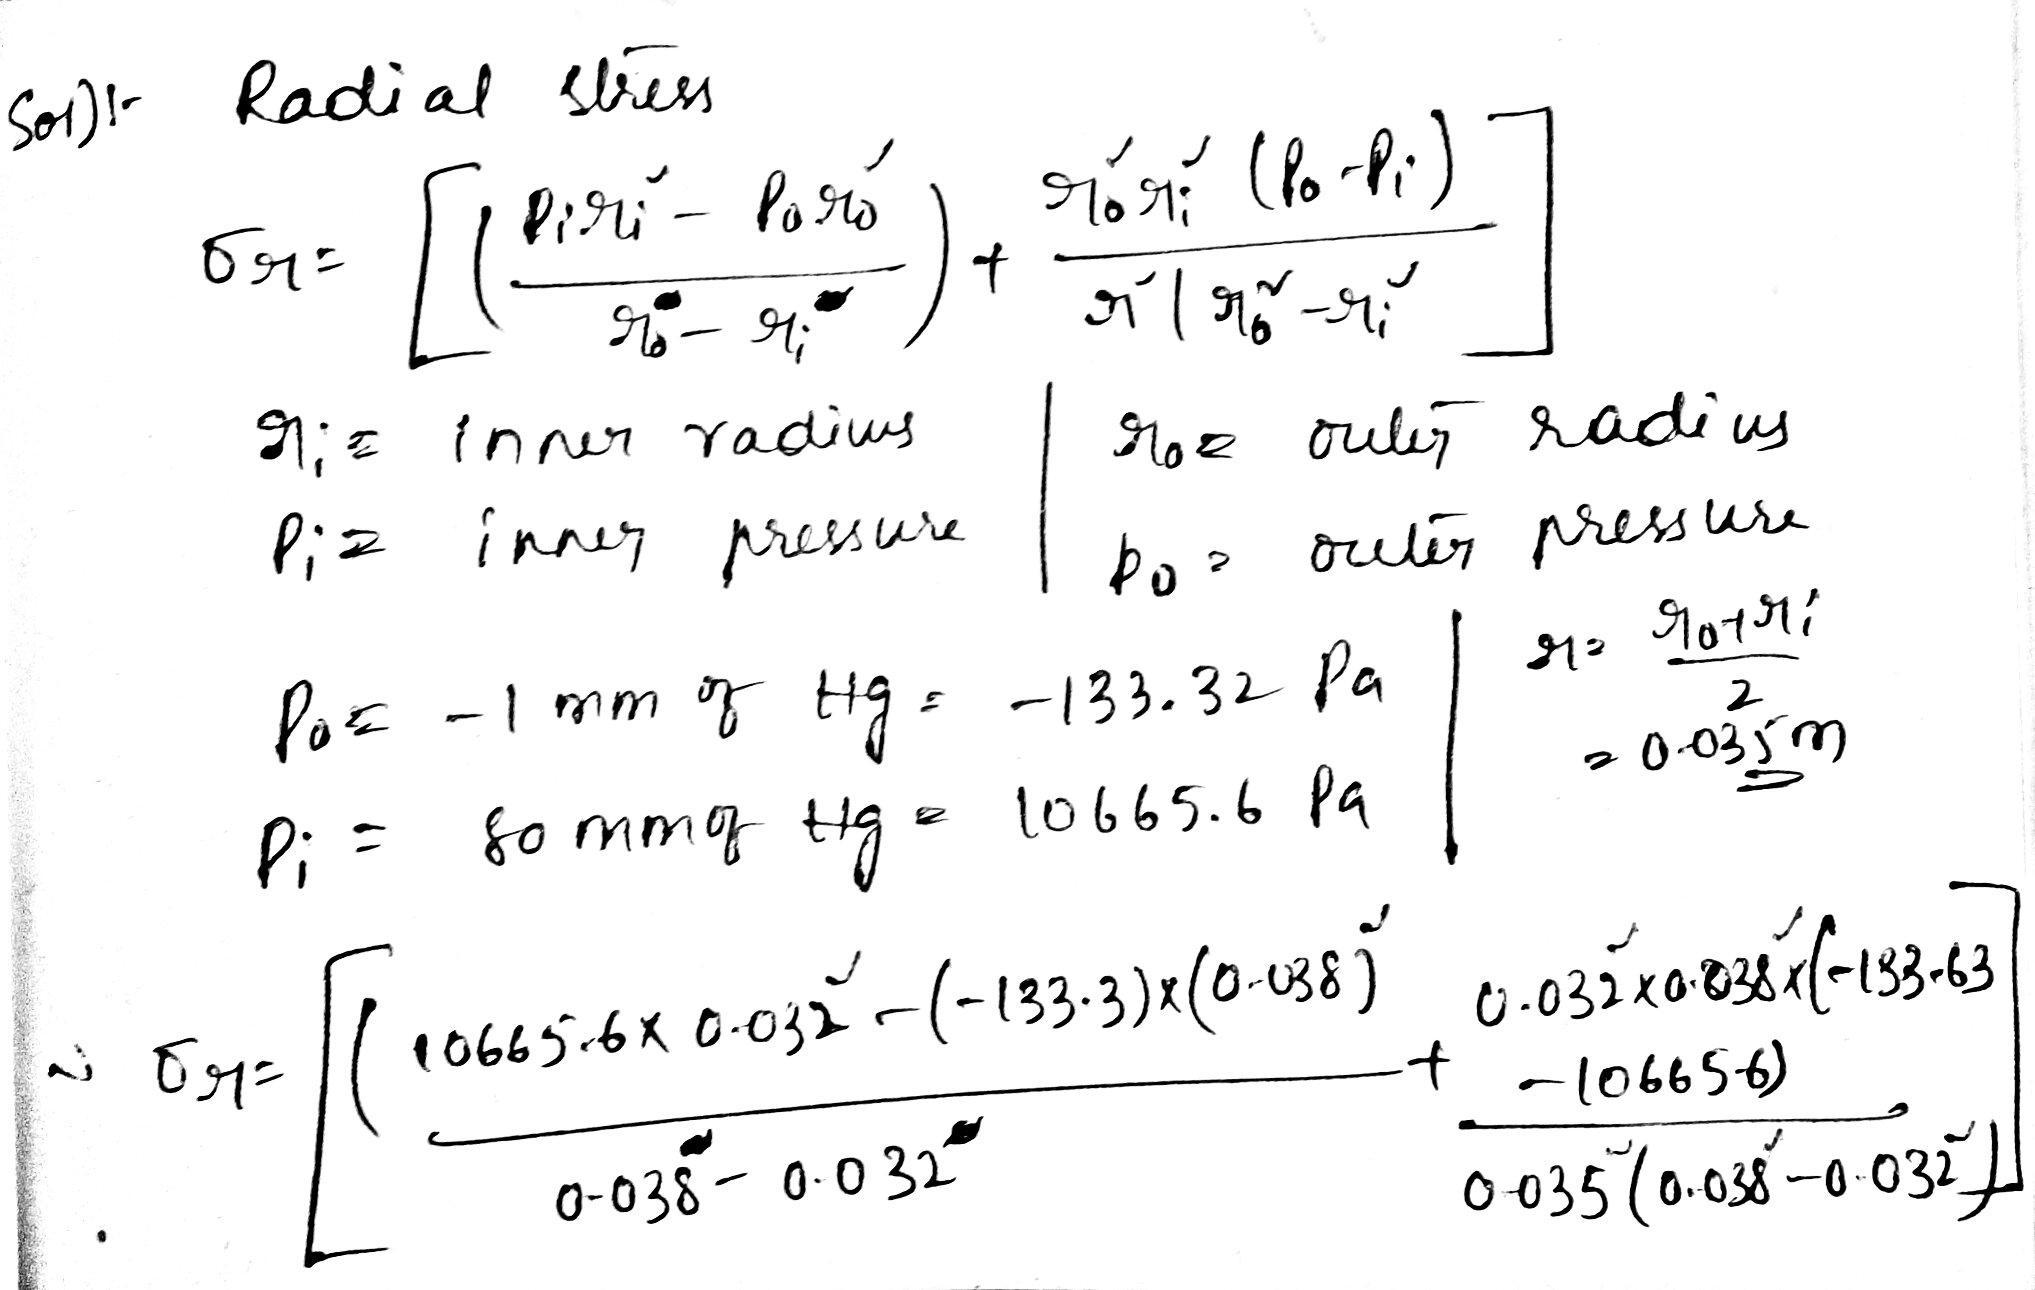 Sol):- Radial stress
σr = [ ( (Pi ri² - Po ro²) / (ro - ri) ) + ro² ri² (Po - Pi) / r² (ro² - ri² ]
ri = inner radius | ro = outer radius
Pi = inner pressure | Po = outer pressure
Po = -1 mm of Hg = -133.32 Pa | r = (ro + ri) / 2
Pi = 80 mm of Hg = 10665.6 Pa | = 0.035 m
∴ σr = [ ( (10665.6 x 0.032² - (-133.3) x (0.038)²) / (0.038 - 0.032) + 0.032² x 0.038² x (-133.63 - 10665.6) / 0.035² (0.038² - 0.032²) ]